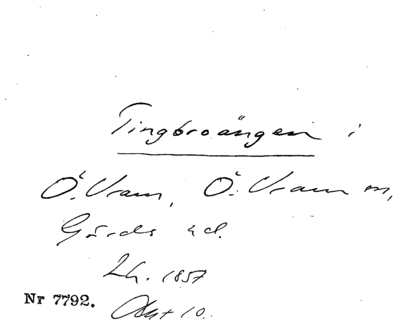 Tingbroängen i
Ö. Vram, Ö. Vram sn,
Gärds hd.
Lh. 1857
Akt 10.
Nr 7792.